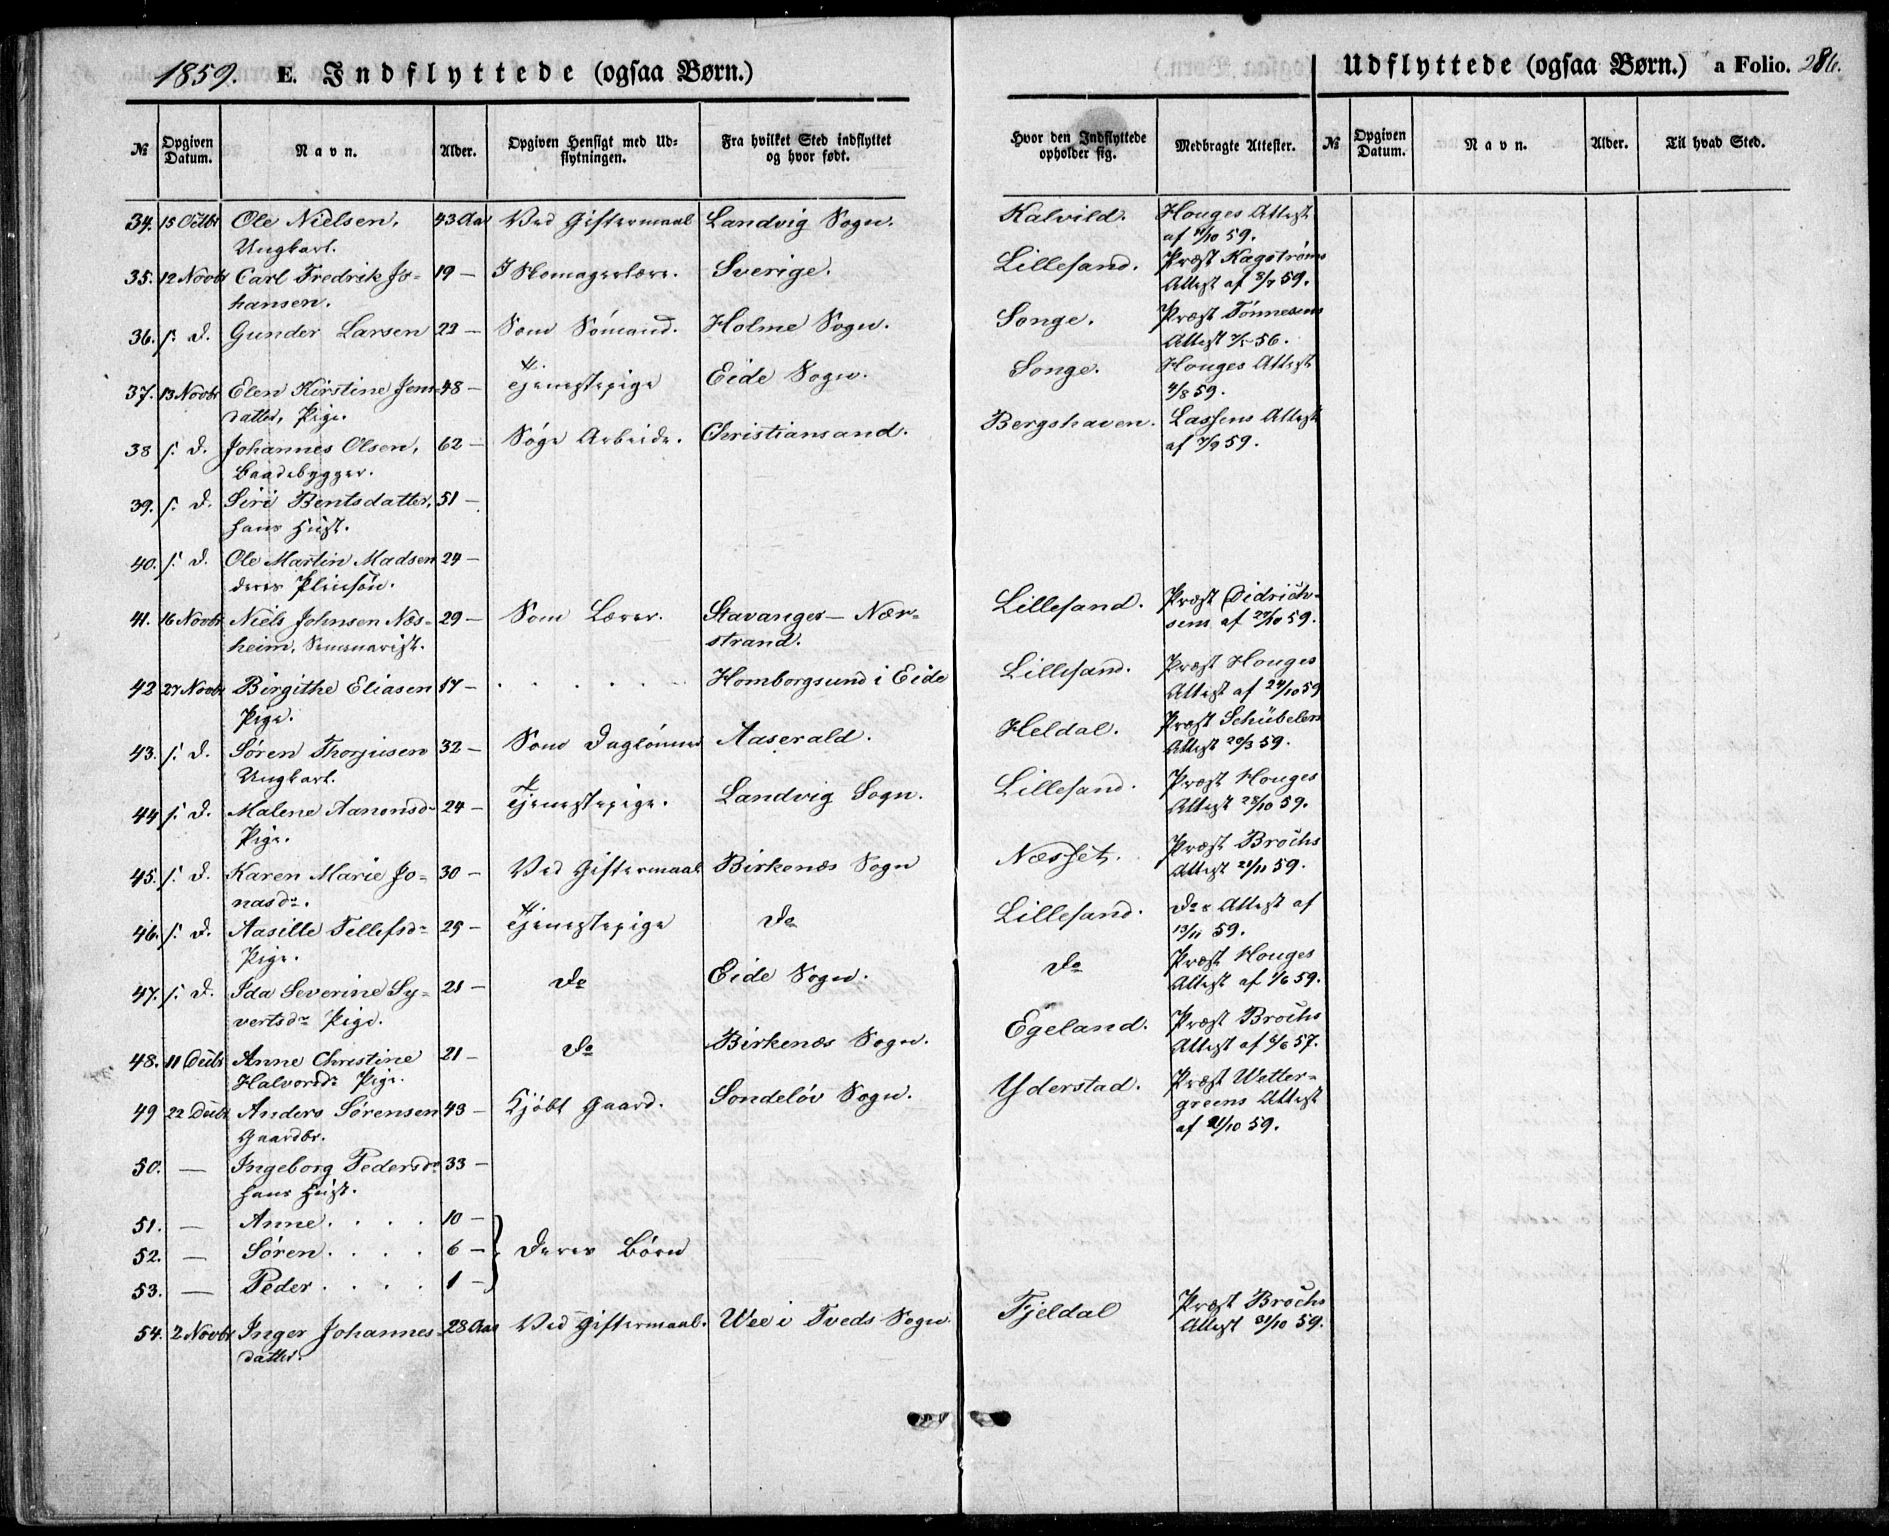 1859. E. Indflyttede (ogsaa Børn.)
Udflyttede (ogsaa Børn.) a Folio. 286.
№ | Opgiven Datum. | Navn. | Alder. | Opgiven Hensigt med Udflytningen. | Fra hvilket Sted indflyttet og hvor født. | Hvor den Indflyttede opholder sig. | Medbragte Attester. | № | Opgiven Datum. | Navn. | Alder. | Til hvad Sted.
34. 15 Octbr Ole Nielsen, 43 Aar Ved Giftermaal Landvig Sogn. Kalvild. Houges Attest
Ungkarl. af 11/10 59.
35. 12 Novbr Carl Fredrik Jo- 19 — I Skomagerlære. Sverige. Lillesand. Præst Kagstrøms
hansen. Attest af 8/7 59.
36. s. D. Gunder Larsen 22 — Som Sømand. Holme Sogn. Songe. Præst Tønnesens
Attest 56.
37. 13 Novbr Elen Kirstine Jens- 48 — Tjenestepige Eide Sogn. Songe. Houges Attest
datter, Pige. 4/8 59.
38 s. D. Johannes Olsen, 62 — Søge Arbeide. Christiansand. Bergshaven. Lassens Attest
Baadebygger. af 7/9 59.
39. s. D. Siri Bentsdatter, 51 —
hans Hust.
40. s. D. Ole Martin Madsen 24 —
deres Pleiesøn.
41. 16 Novbr Niels Johnsen Næs- 29 — Som Lærer. Stavanger — Nær- Lillesand. Præst Didrich-
heim, Semenarist. strand. sens af 27/10 59.
42 27 Novbr Birgithe Eliasen 17 — . . . . . . Homborgsund i Eide Lillesand. Præst Houges
Pige. Attest af 24/10 59
43. s. D. Søren Thorjusen 32 — Som Daglønner Aaserald. Heldal. Præst Schübelers
Ungkarl. Attest 20/3 59.
44 s. D. Malene Aanonsdr 24 — Tjenestepige. Landvig Sogn. Lillesand. Præst Houges
Pige. Attest 28/10 59.
45. s. D. Karen Marie Jo- 30 — Ved Giftermaal Birkenæs Sogn Næsset. Præst Brochs
nasdr. Attest 21/11 59.
46. s. D. Aasille Tellefsdr 25 — Tjenestepige Do Lillesand. Dos Attest af
Pige. 13/11 59.
47. s. D. Ida Severine Sy- 21 — Do Eide Sogn. Do Præst Houges
vertsdr Pige. Attest af 1/6 59.
48. 11 Decbr Anne Christine 21 — Do Birkenæs Sogn. Egeland. Præst Brochs
Halvorsdr Pige. Attest af 8/6 57.
49 22 Decbr Anders Sørensen 43 — Kjøbt Gaard. Sondeløv Sogn. Yderstad. Præst Wetter-
Gaardbr. greens Attest
af 21/10 59.
50. — Ingeborg Pedersdr 33 —
hans Hust.
51. — Anne . . . . 10 —
52. — Søren . . . . 6 — } Deres Børn
53. — Peder . . . . 1 —
54. 2 Novbr Inger Johannes- 28 Aar Ved Giftermaal. Wee i Tveds Sogn Fjeldal Præst Brochs
datter. Attest 31/10 59.